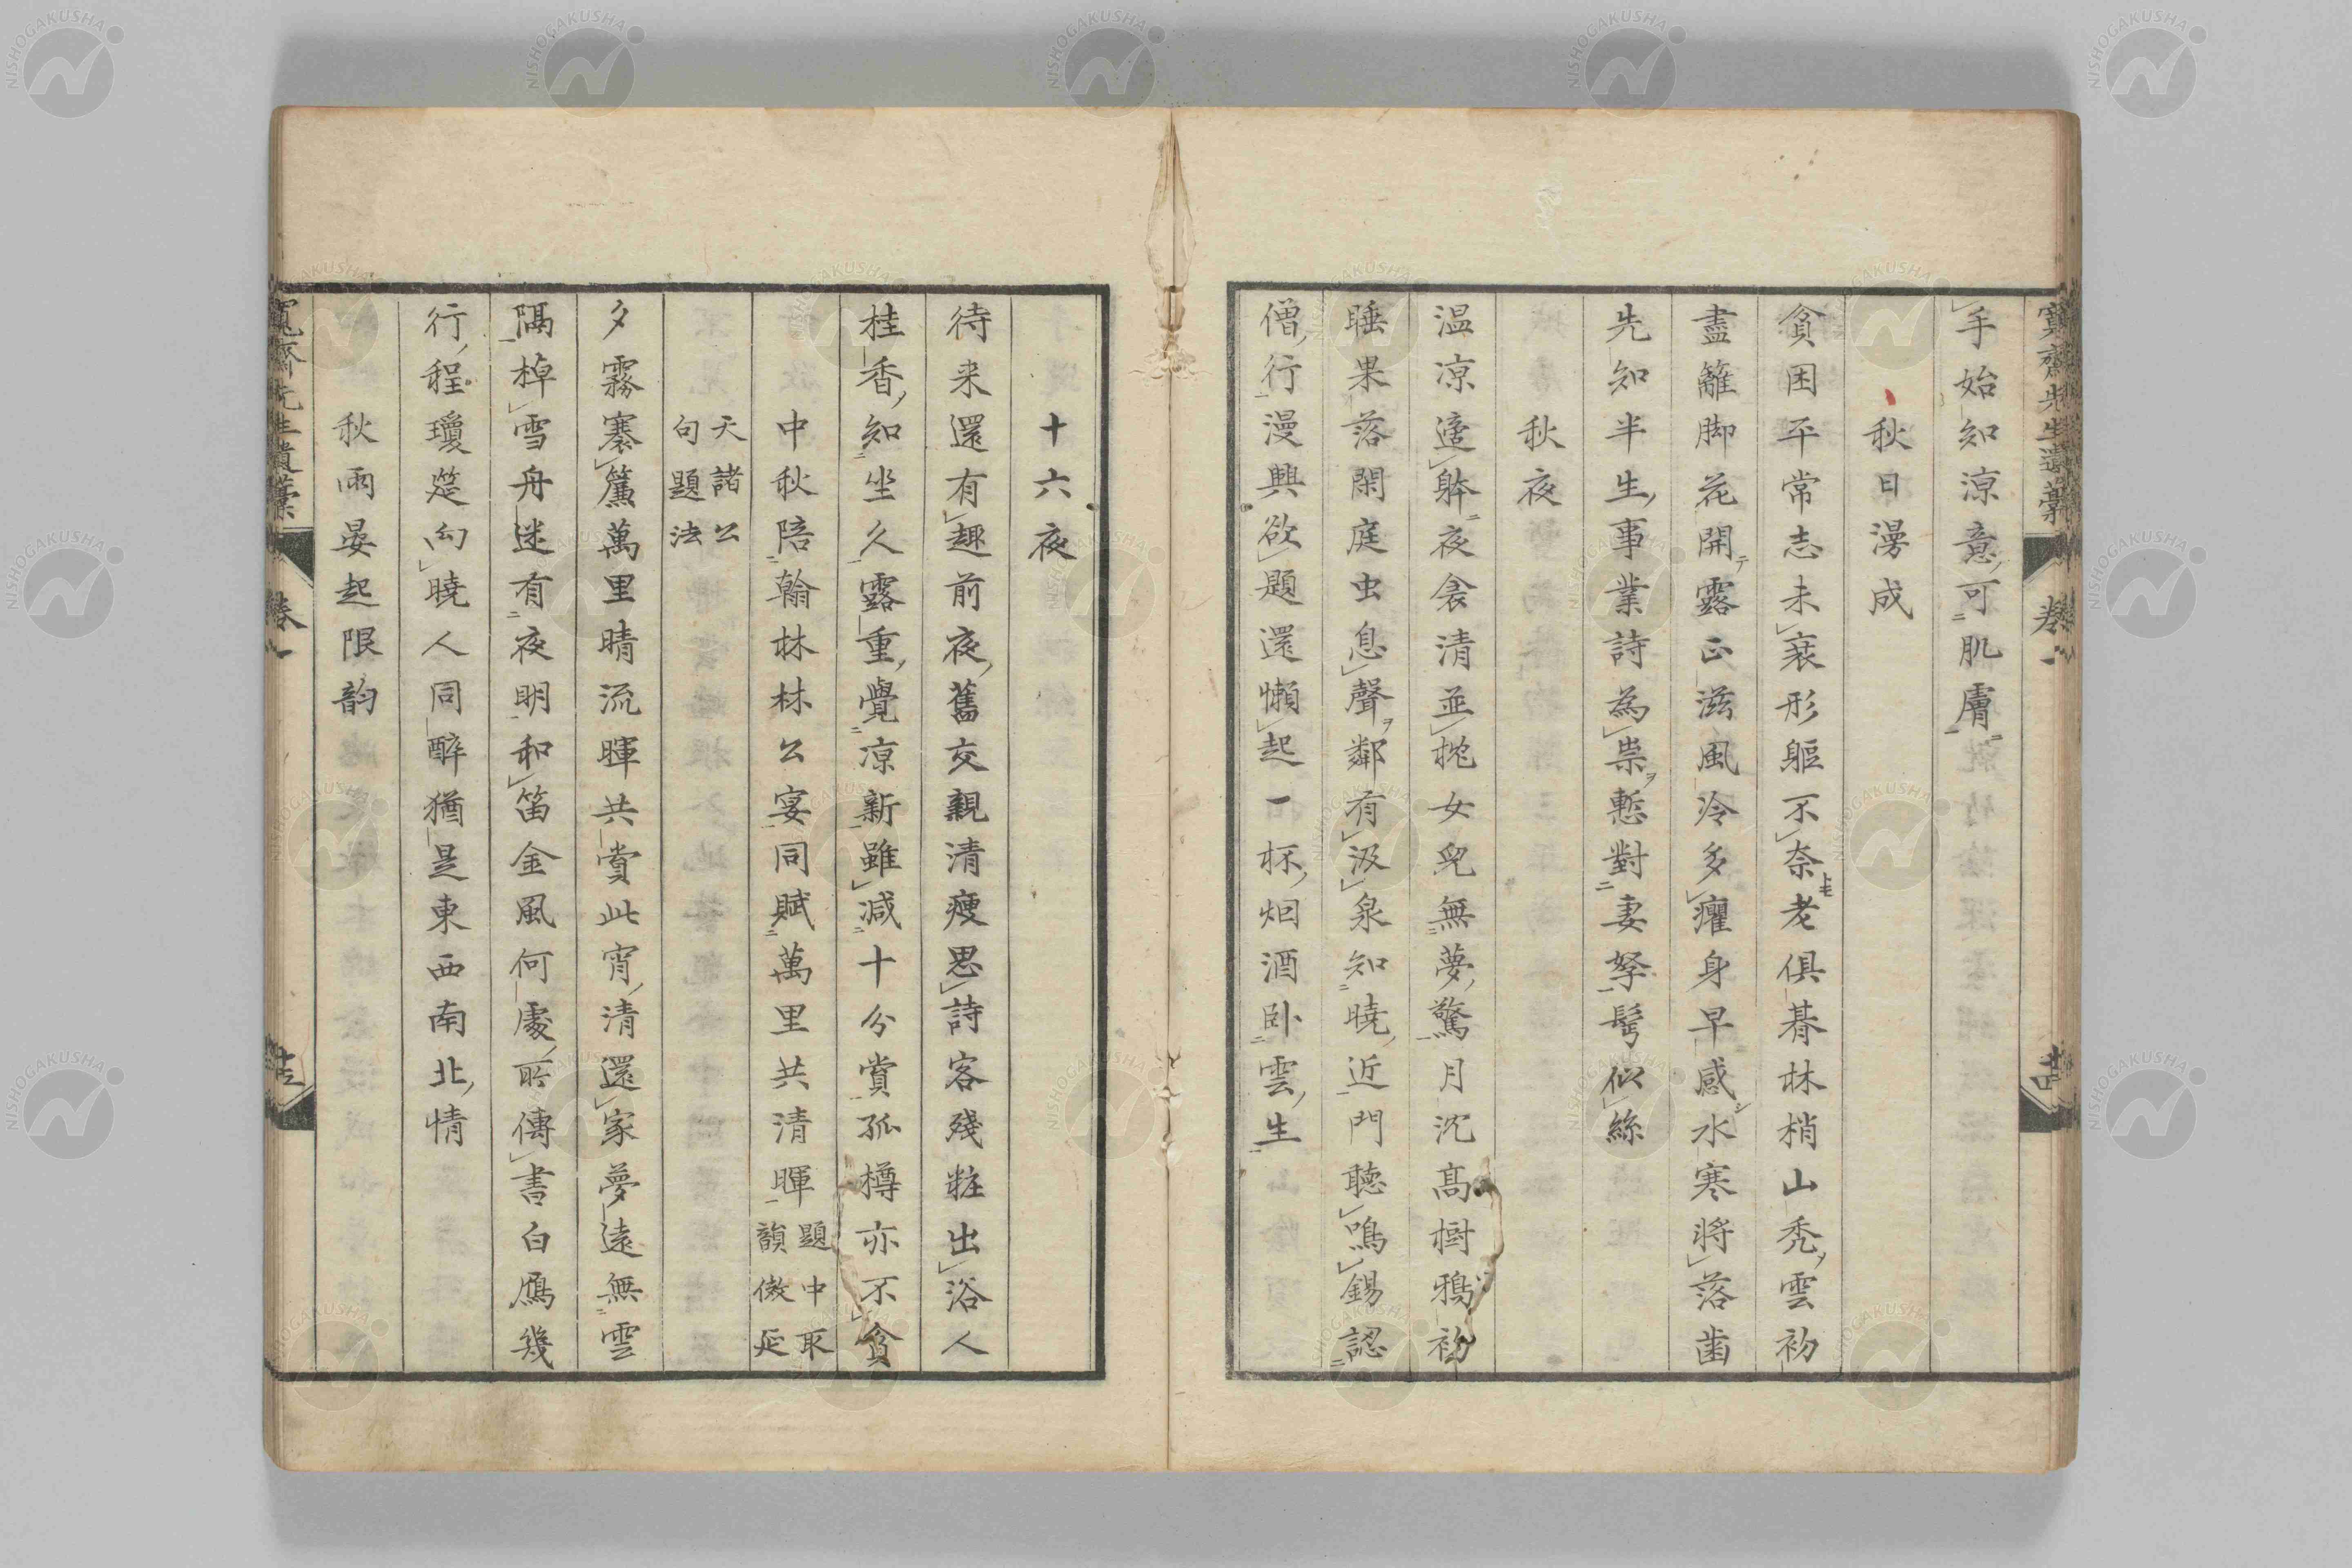 手始知涼意可肌膚
秋日漫成
貧困平常志未衰形軀不奈老俱碁林梢山禿雲初
盡籬脚花開露正滋風冷多癯身早感水寒將落歯
先知半生事業詩為祟慙對妻孥髩似絲
秋夜
温凉適躰夜衾清並枕女兒無夢驚月沈髙樹鴉初
睡果落閑庭虫息聲鄰有汲泉知曉近門聴鳴錫認
僧行漫興欲題還懶起一杯烟酒卧雲生
十六夜
待来還有趣前夜舊交親清痩思詩客殘粧出浴人
桂香知坐久露重覺凉新雖减十分賞孤樽亦不貧
中秋陪翰林林公宴同賦萬里共清暉題中取韻傚延
天諸公句題法
夕霧褰簾萬里晴流暉共賞此宵清還家夢遠無雲
隔棹雪舟迷有夜明和笛金風何處所傳書白鴈幾
行程瓊筵勾曉人同醉猶是東西南北情
秋雨晏起限韵
寛齋先生遺藁
卷一
NISHOGAKUSHA